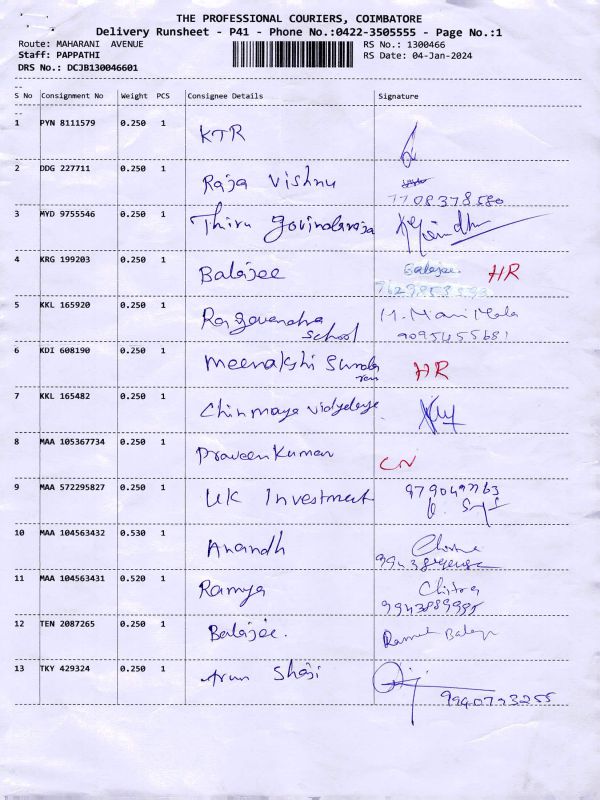 THE PROFESSIONAL COURIERS, COIMBATORE
Delivery Runsheet - P41 - Phone No.:0422-3505555 - Page No.:1
Route: MAHARANI AVENUE RS No.: 1300466
Staff: PAPPATHI RS Date: 04-Jan-2024
DRS No.: DCJB130046601
S No Consignment No Weight PCS Consignee Details Signature
1 PYN 8111579 0.250 1 KTR
2 DDG 227711 0.250 1 Raja Vishnu
7708378580
3 MYD 9755546 0.250 1 Thiru Govindaraja
4 KRG 199203 0.250 1 Balajee Balajee. HR
5 KKL 165920 0.250 1 Ragavendra School M. Mani Mala
9095455681
6 KDI 608190 0.250 1 Meenakshi Sundaram HR
7 KKL 165482 0.250 1 Chinmaya Vidyalaya
8 MAA 105367734 0.250 1 Praveen Kumar CN
9 MAA 572295827 0.250 1 UK Investment
10 MAA 104563432 0.530 1 Anandh
11 MAA 104563431 0.520 1 Ramya Chitra
9943889995
12 TEN 2087265 0.250 1 Balajee.
13 TKY 429324 0.250 1 Arun Shaji
9940793255